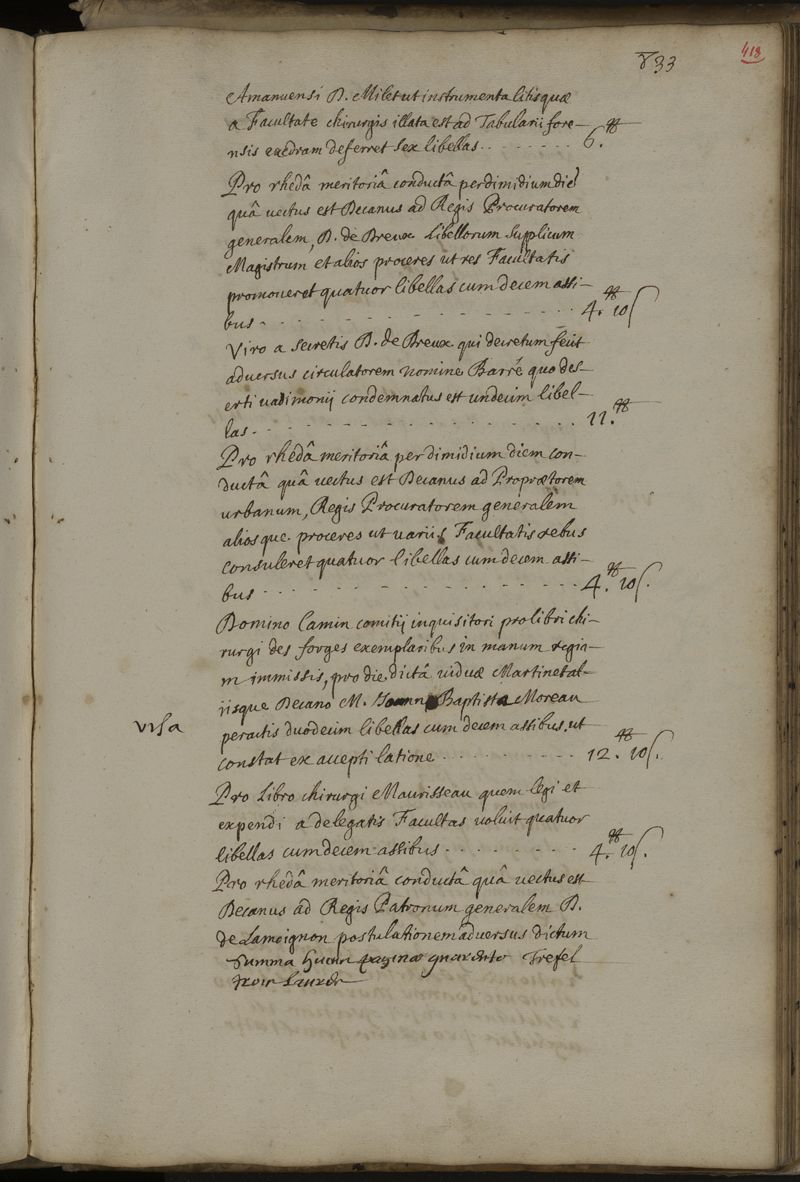 413
833
Amanuensi D. Milet ut instrumenta litis quæ
a Facultate chirurgis illata est ad Tabularii fore-
nsis exedram deferret sex libellas - - - - - - - 6. ₶
Pro rhedâ meritoriâ conductâ per dimidium diē
quâ vectus est Decanus ad Regis Procuratorem
generalem, D. de Breux Libellorum supplicum
Magistrum et alios proceres ut res Facultatis
promoveret quatuor libellas cum decem assi-
bus - - - - - - - - - - - - - - 4. ₶ 10 ʃ
Viro a secretis D. de Breux qui decretum fecit
adversus circulatorem nomine Barré quo des-
erti vadimonij condemnatus est undecim libel-
las - - - - - - - - - - - - - - 11. ₶
Pro rhedâ meritoriâ per dimidium diem con-
ductâ quâ vectus est Decanus ad Proprætorem
urbanum, Regis Procuratorem generalem
aliosque proceres ut variis Facultatis rebus
consuleret quatuor libellas cum decem assi-
bus - - - - - - - - - - - - - - 4. ₶ 10 ʃ.
Domino Camin comitij inquisitori pro libri chi-
rurgi des forges exemplaribus in manum regia-
m immissis, pro die dictâ viduæ Martinet al-
iisque Decano M. Joanne Baptista Moreau
visa
peractis duodecim libellas cum decem assibus, ut
constat ex accepti latione - - - - - - - - 12. ₶ 10 ʃ.
Pro Libro chirurgi Maurisseau quem legi et
expendi a delegatis Facultas voluit quatuor
libellas cum decem assibus - - - - - - - - 4. ₶ 10 ʃ.
Pro rhedâ meritoriâ conductâ quâ vectus est
Decanus ad Regis Patronum generalem D.
de Lamoignon postulationem adversus dictum
Summa huius paginæ quarante